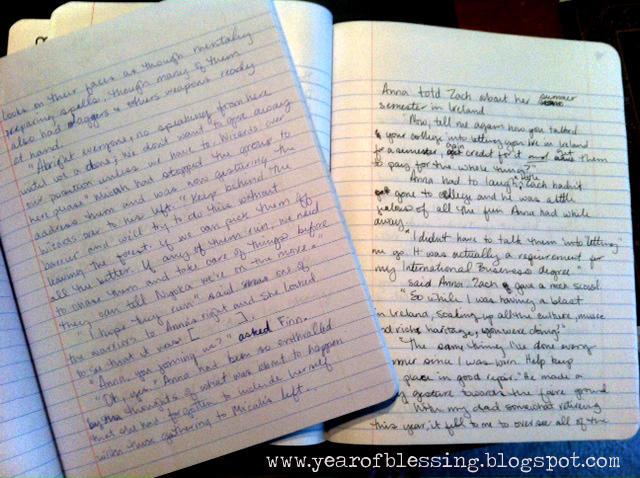 looks on their faces as though mentally
preparing spells, though many of them
also had daggers & others weapons ready
at hand.
"Alright everyone, no speaking from here
until we're done; we don't want to give away
our position unless we have to. Wizards over
here please." Micah had stopped the group to
address them and was now gesturing the
wizards over to his left. "Keep behind the
barrier and we'll try to do this without
leaving the forest. If we can pick them off
all the better. If any of them run, we need
to chase them and take care of things before
they can tell Niyoka we're on the move."
"I hope they run" said one of
the warriors to Anna's right and she looked
to see that it was [ ].
"Anna, you joining us?" asked Finn.
"Oh, yea." Anna had been so enthralled
by the thoughts of what was about to happen
that she had forgotten to include herself
with those gathering to Micah's left.
Anna told Zach about her summer
semester in Ireland
"Now, tell me again how you talked
your college into letting you live in Ireland
for a semester, get credit for it and get them
to pay for the whole thing"
Anna had to laugh; Zach hadn't
gone to college and he was a little
jealous of all the fun Anna had while
away.
"I didn't have to talk them into letting
me go. It was actually a requirement for
my International Business degree"
said Anna. Zach gave a mock scowl.
"So while I was having a blast
in Ireland, soaking up all the culture, music
and rich heritage, you were doing?"
"The same thing I've done every
summer since I was born. Help keep
place in good repair." He made a
gesture towards the faire ground
With my dad somewhat retiring
this year, it fell to me to over see all of the
www.yearofblessing.blogspot.com